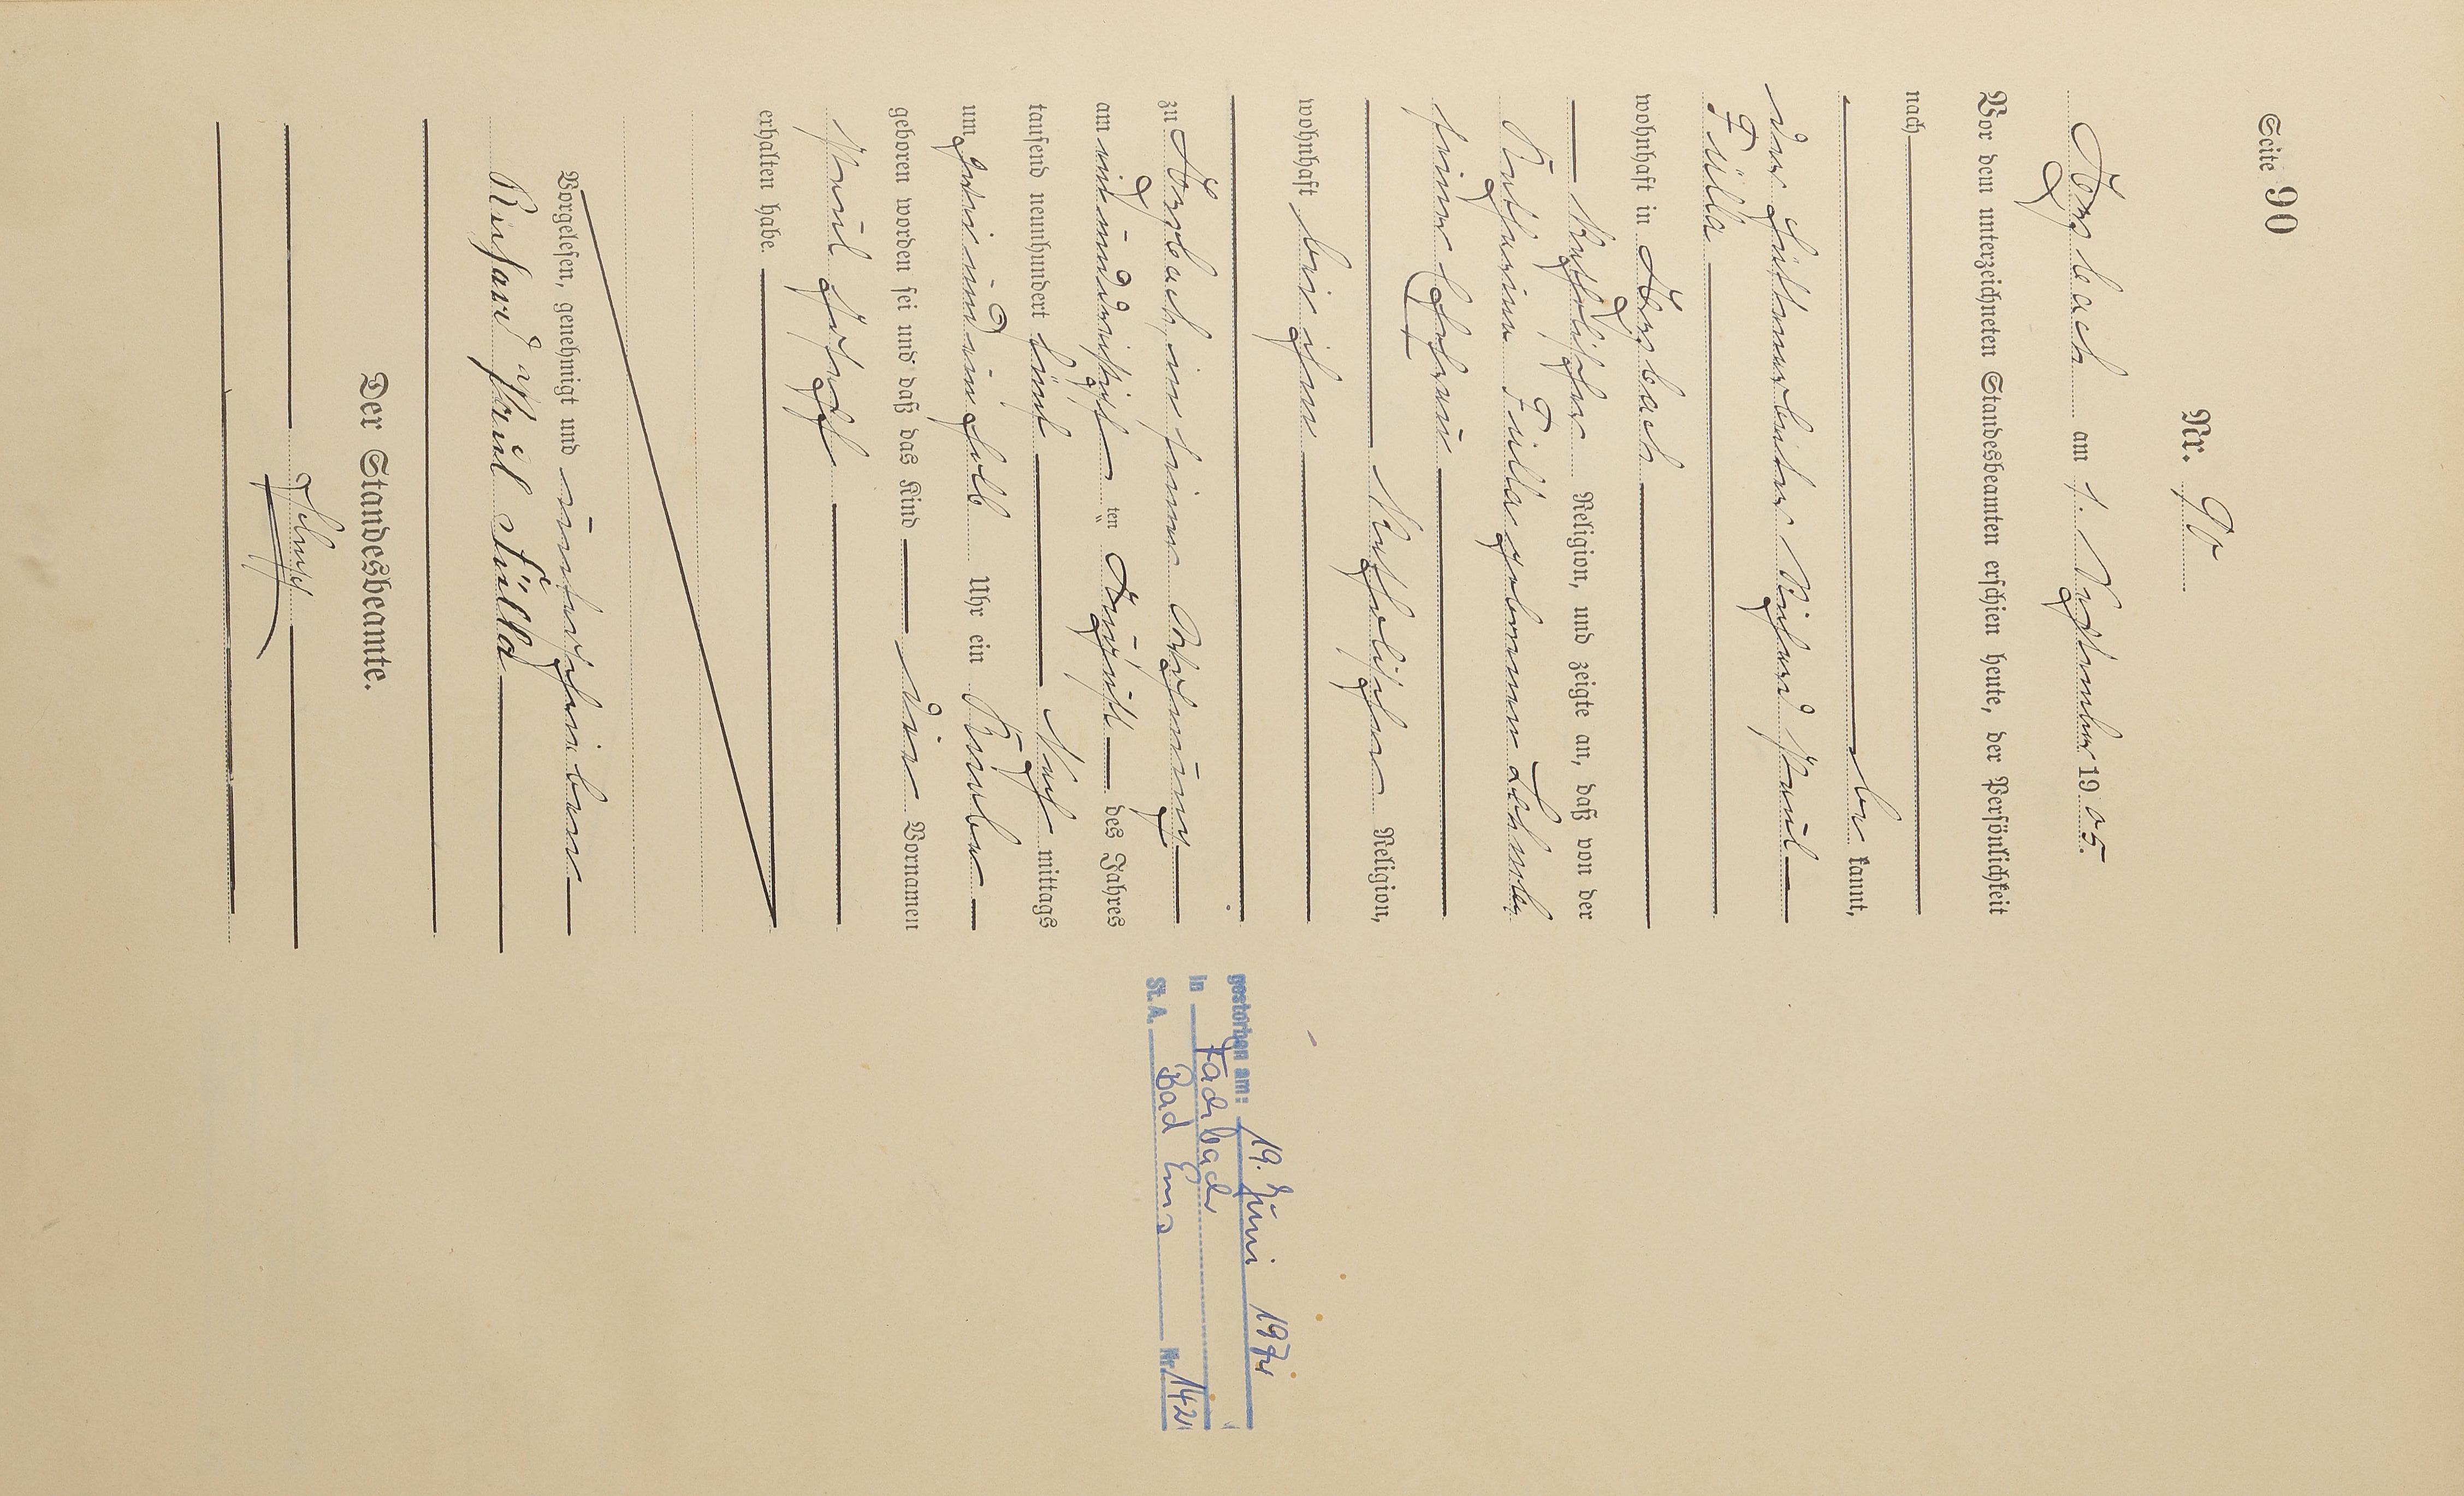 Seite 90
Nr. 90
Arzbach am 1. September 1905.
Vor dem unterzeichneten Standesbeamten erschien heute, der Persönlichkeit
nach
be kannt,
der Hüttenarbeiter Richard Paul
Fülla
wohnhaft in Arzbach
katholischer Religion, und zeigte an, daß von der
Katharina Fülla geborenen
seiner Ehefrau
katholischer Religion,
wohnhaft bei ihm
zu Arzbach, in seiner Wohnung
am einunddreißigsten ten August des Jahres
tausend neunhundert fünf Nach mittags
um zwei und ein halb Uhr ein Knabe
geboren worden sei und daß das Kind den Vornamen
Paul Joseph
erhalten habe.
Vorgelesen, genehmigt und unterschrieben
Richard Paul Fülla
Der Standesbeamte.
gestorben am: 19. Juni 197
in Fachbach
St. A. Bad Ems Nr. 142